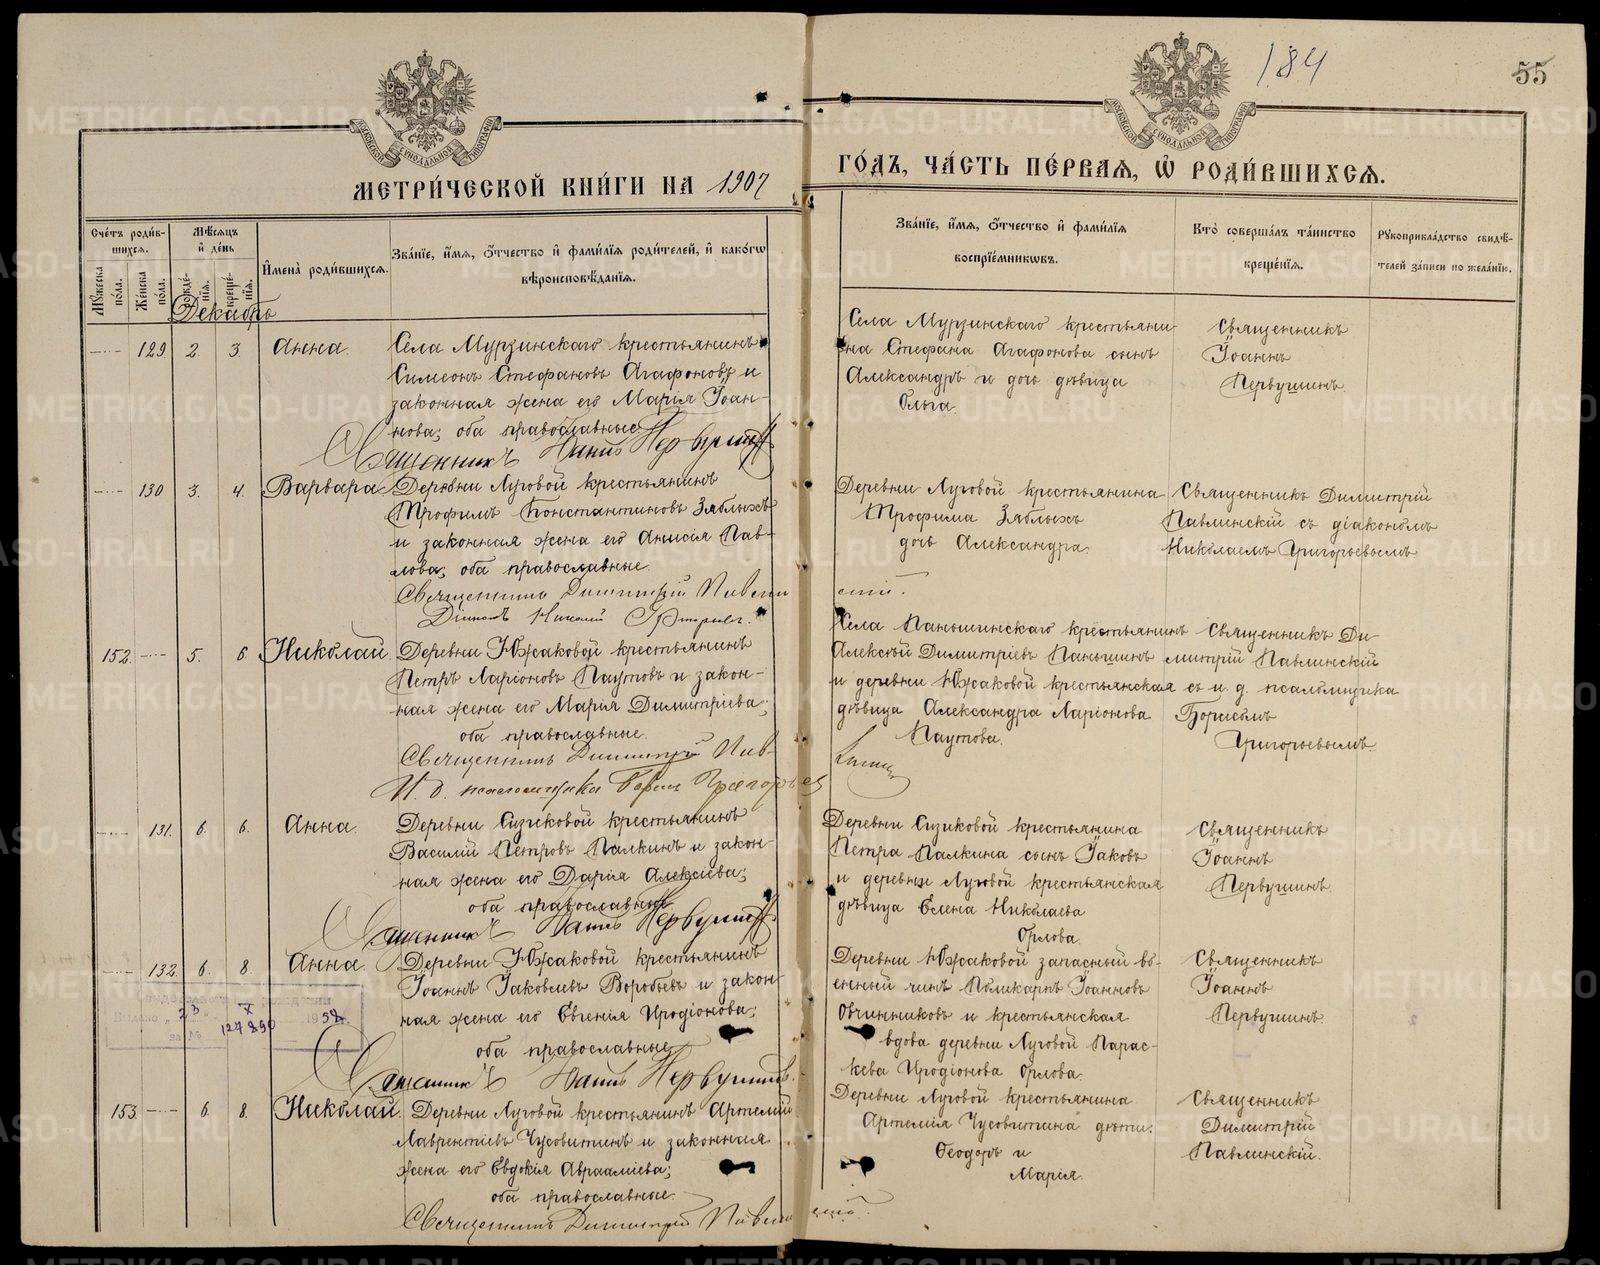 184
55
МЕТРИ́ЧЕСКОЙ КНИ́ГИ НА 1907
ГО́ДЪ, ЧА́СТЬ ПЕ́РВАЯ, Ѡ҆ РОДИ́ВШИХСЯ.
Сче́тъ роди́в-
шихся.
Мꙋ́жеска по́ла.
Же́нска по́ла.
Мѣ́сяцъ и҆ де́нь
рожде́-нїя.
креще́-нїя.
И҆мена̀ роди́вшихся.
Зва́нїе, и҆́мя, ѻ҆́тчество и҆ фами́лїя роди́телей, и҆ како́гѡ
вѣроисповѣ́данїя.
Зва́нїе, и҆́мя, ѻ҆́тчество и҆ фами́лїя
воспрїе́мникѡвъ.
Кто̀ соверша́лъ та́инство
креще́нїя.
Рꙋкоприкла́дство свидѣ́-
телей за́писи по жела́нїю.
Декабрь
129 2. 3. Анна.
Села Мурзинскаго крестьянинъ
Симеонъ Стефановъ Агафоновъ и
законная жена его Марія Іоан-
нова; оба православные.
Священникъ Іоаннъ Первушинъ
Села Мурзинскаго крестьяни-
на Стефана Агафонова сынъ
Александръ и дочь дѣвица
Ольга.
Священникъ
Іоаннъ
Первушинъ
130 3. 4. Варвара
Деревни Луговой крестьянинъ
Трофимъ Константиновъ Зяблыхъ
и законная жена его Анисія Пав-
лова; оба православные.
Священникъ Димитрій Павлин
скій.
Діаконъ Николай Григорьев.
Деревни Луговой крестьянина
Трофима Зяблыхъ
дочь Александра.
Священникъ Димитрій
Павлинскій съ діакономъ
Николаемъ Григорьевымъ
152. 5. 6. Николай.
Деревни Южаковой крестьянинъ
Петръ Ларіоновъ Паутовъ и закон-
ная жена его Марія Димитріева;
оба православные.
Священникъ Димитрій Пав-
линскій
И. д. псаломщика Борисъ Григорьев
Села Паньшинскаго крестьянинъ
Алексѣй Димитріевъ Паньшинъ
и деревни Южаковой крестьянская
дѣвица Александра Ларіонова
Паутова.
Священникъ Ди-
митрій Павлинскій
съ и. д. псаломщика
Борисомъ
Григорьевымъ.
131. 6. 6. Анна.
Деревни Сизиковой крестьянинъ
Василій Петровъ Палкинъ и закон-
ная жена его Дарія Алексіева;
оба православные
Священникъ Іоаннъ Первушинъ
Деревни Сизиковой крестьянина
Петра Палкина сынъ Іаковъ
и деревни Луговой крестьянская
дѣвица Елена Николаева
Орлова.
Священникъ
Іоаннъ
Первушинъ.
132. 6. 8. Анна.
Деревни Южаковой крестьянинъ
Іоаннъ Іаковлевъ Воробьевъ и закон-
ная жена его Евгенія Иродіонова;
оба православные
Священникъ Іоаннъ Первушинъ.
Деревни Южаковой запасный во-
енный чинъ Поликарпъ Іоанновъ
Овчинниковъ и крестьянская
вдова деревни Луговой Парас-
кева Иродіонова Орлова.
Священникъ
Іоаннъ
Первушинъ.
23 X 1958
за № 127890
153. 6. 8. Николай.
Деревни Луговой крестьянинъ Артемій
Лаврентіевъ Чусовитинъ и законная
жена его Евдокія Авраамiева;
оба православные.
Священникъ Димитрій Павлинскій.
Деревни Луговой крестьянина
Артемія Чусовитина дѣти:
Ѳеодоръ и
Марія.
Священникъ
Димитрій
Павлинскій.
METRIKI.GASO-URAL.RU